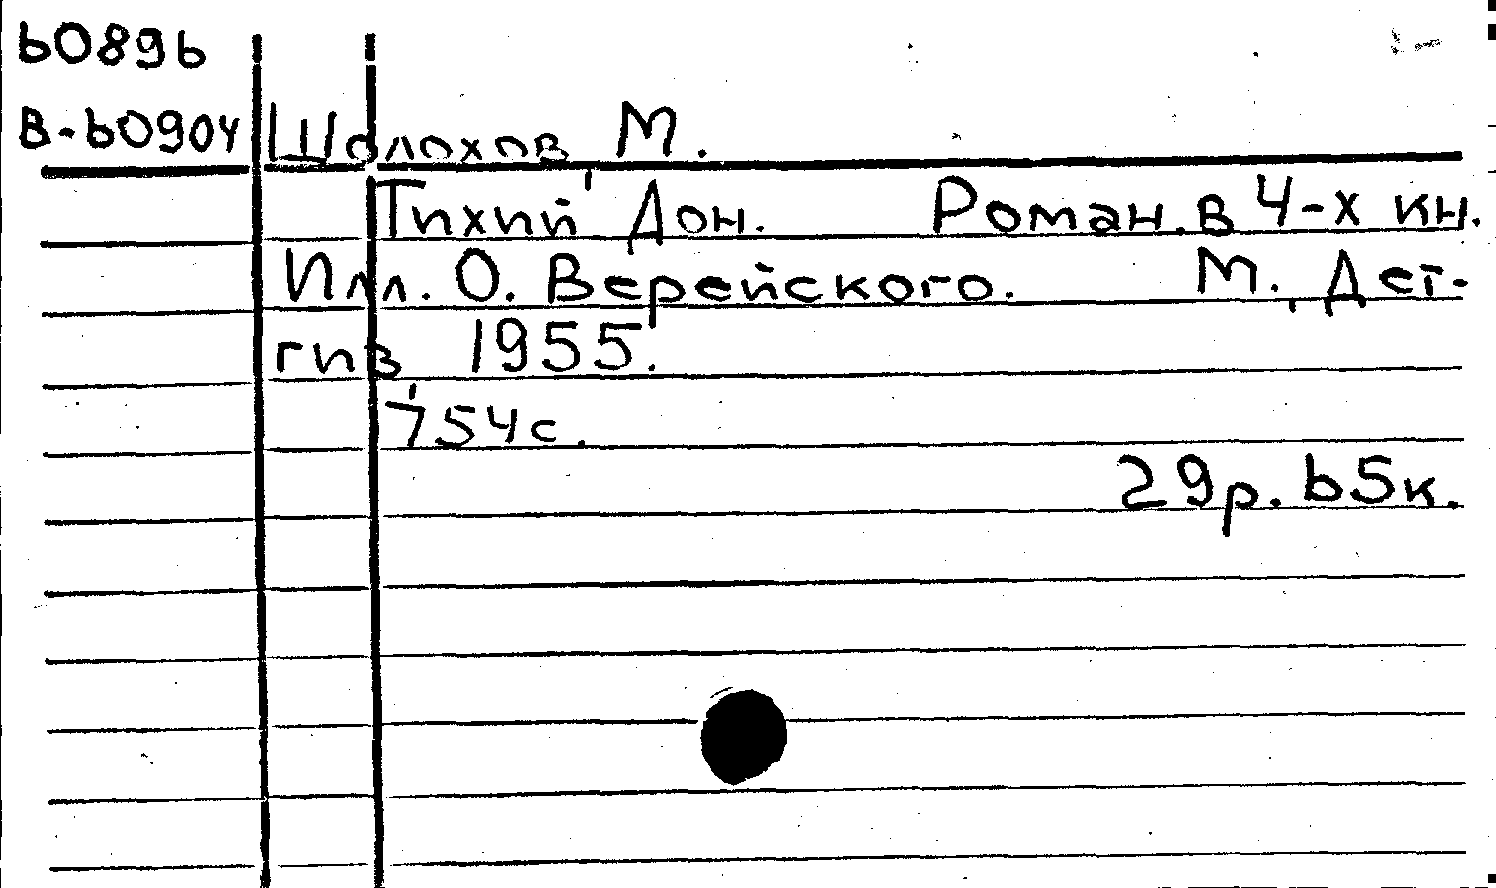 60896
В-60904
Шолохов М.
Тихий Дон. Роман. в 4-х кн.
Ил. О. Верейского. М., Дет-
гиз, 1955.
754с.
29р. 65к.